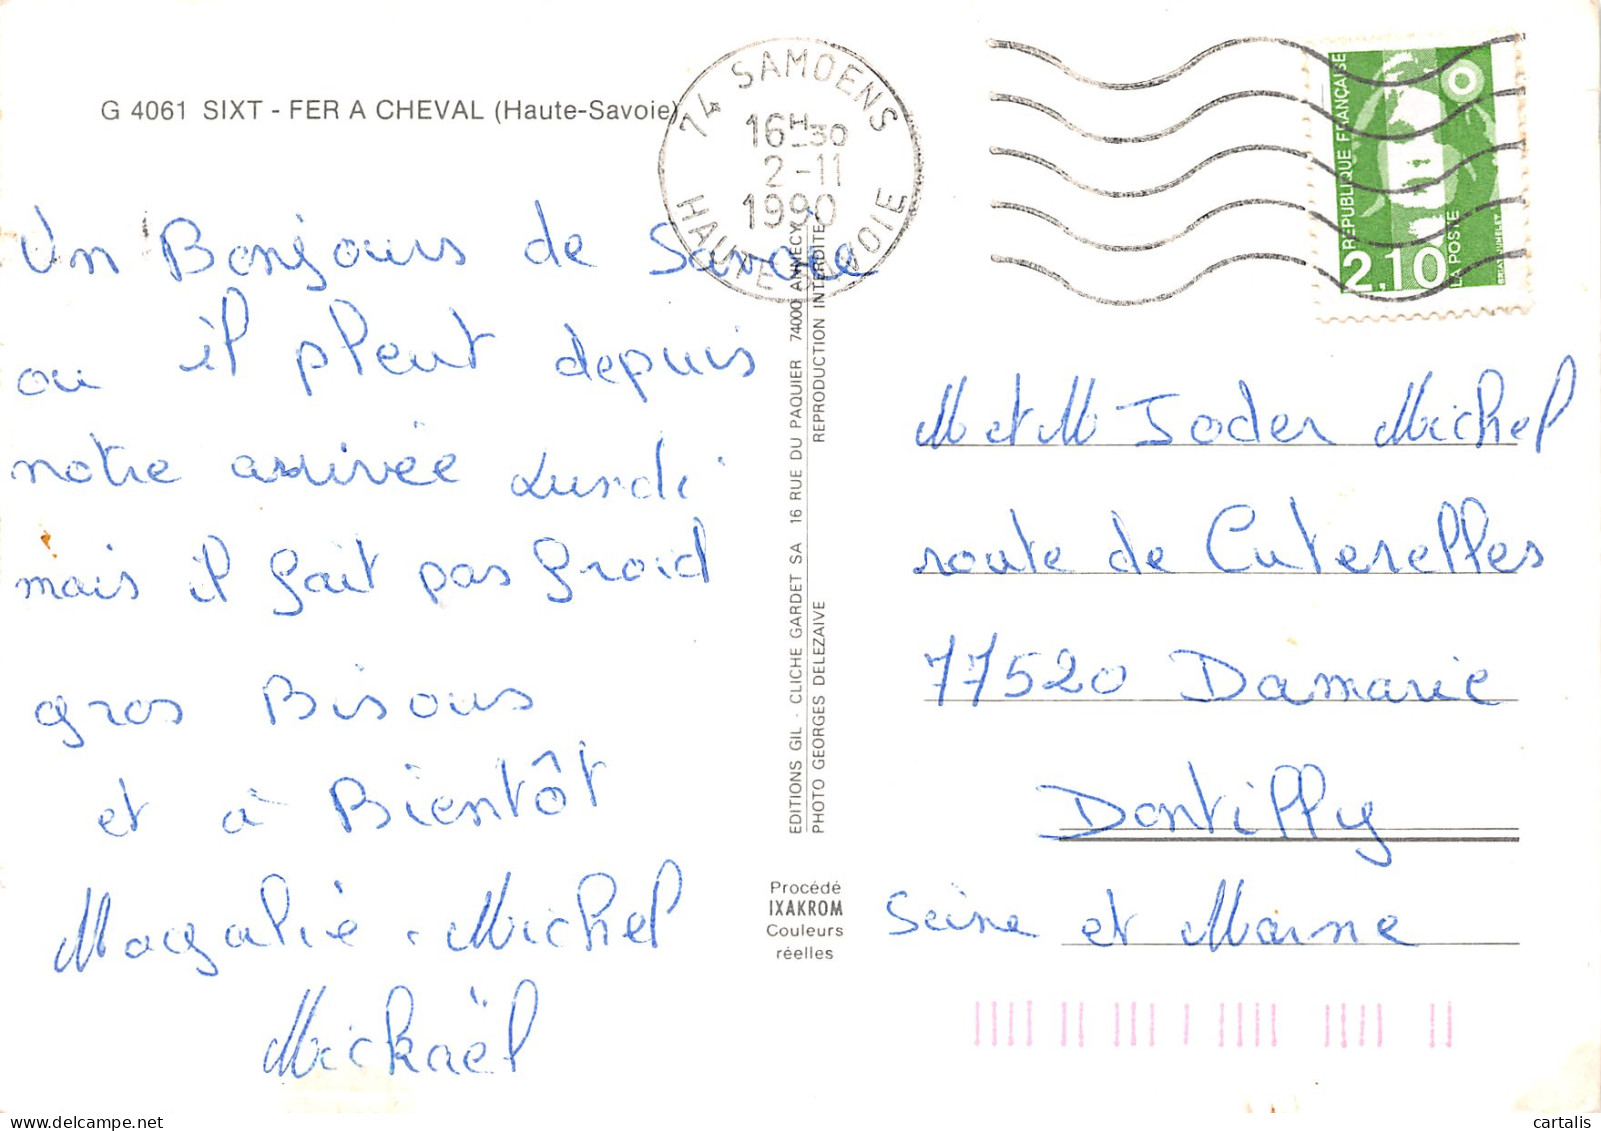 G 4061 SIXT - FER A CHEVAL (Haute-Savoie)
74 SAMOENS
16H30
2-11
1990
HAUTE SAVOIE
REPUBLIQUE FRANÇAISE
2,10
LA POSTE
Un Bonjours de Savoie
ou il pleut depuis
notre arrivée Lundi
mais il fait pas froid
gros Bisous
et à Bientôt
Magalie . Michel
Mickaël
EDITIONS GIL - CLICHE GARDET SA 16 RUE DU PAQUIER 74000 ANNECY
PHOTO GEORGES DELEZAIVE REPRODUCTION INTERDITE
Procédé
IXAKROM
Couleurs
réelles
M et M Joder Michel
route de Cuterelles
77520 Damarie
Dontilly
Seine et Marne
cartalis